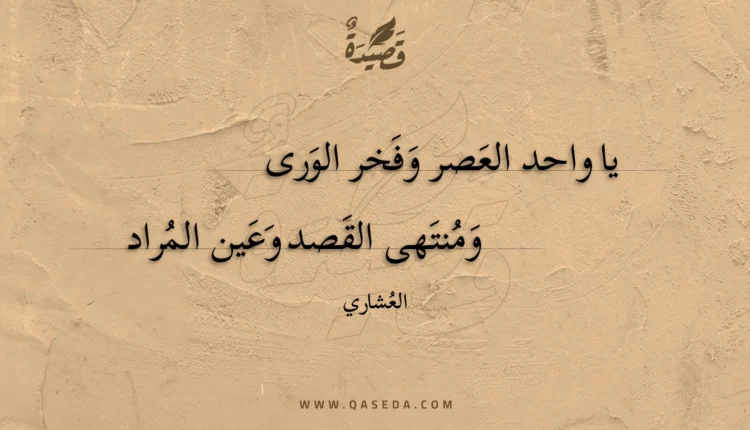 قَصِيْدَةٌ
يا واحد العَصر وَفَخر الوَرى
وَمُنتَهى القَصد وَعَين المُراد
العُشاري
WWW.QASEDA.COM